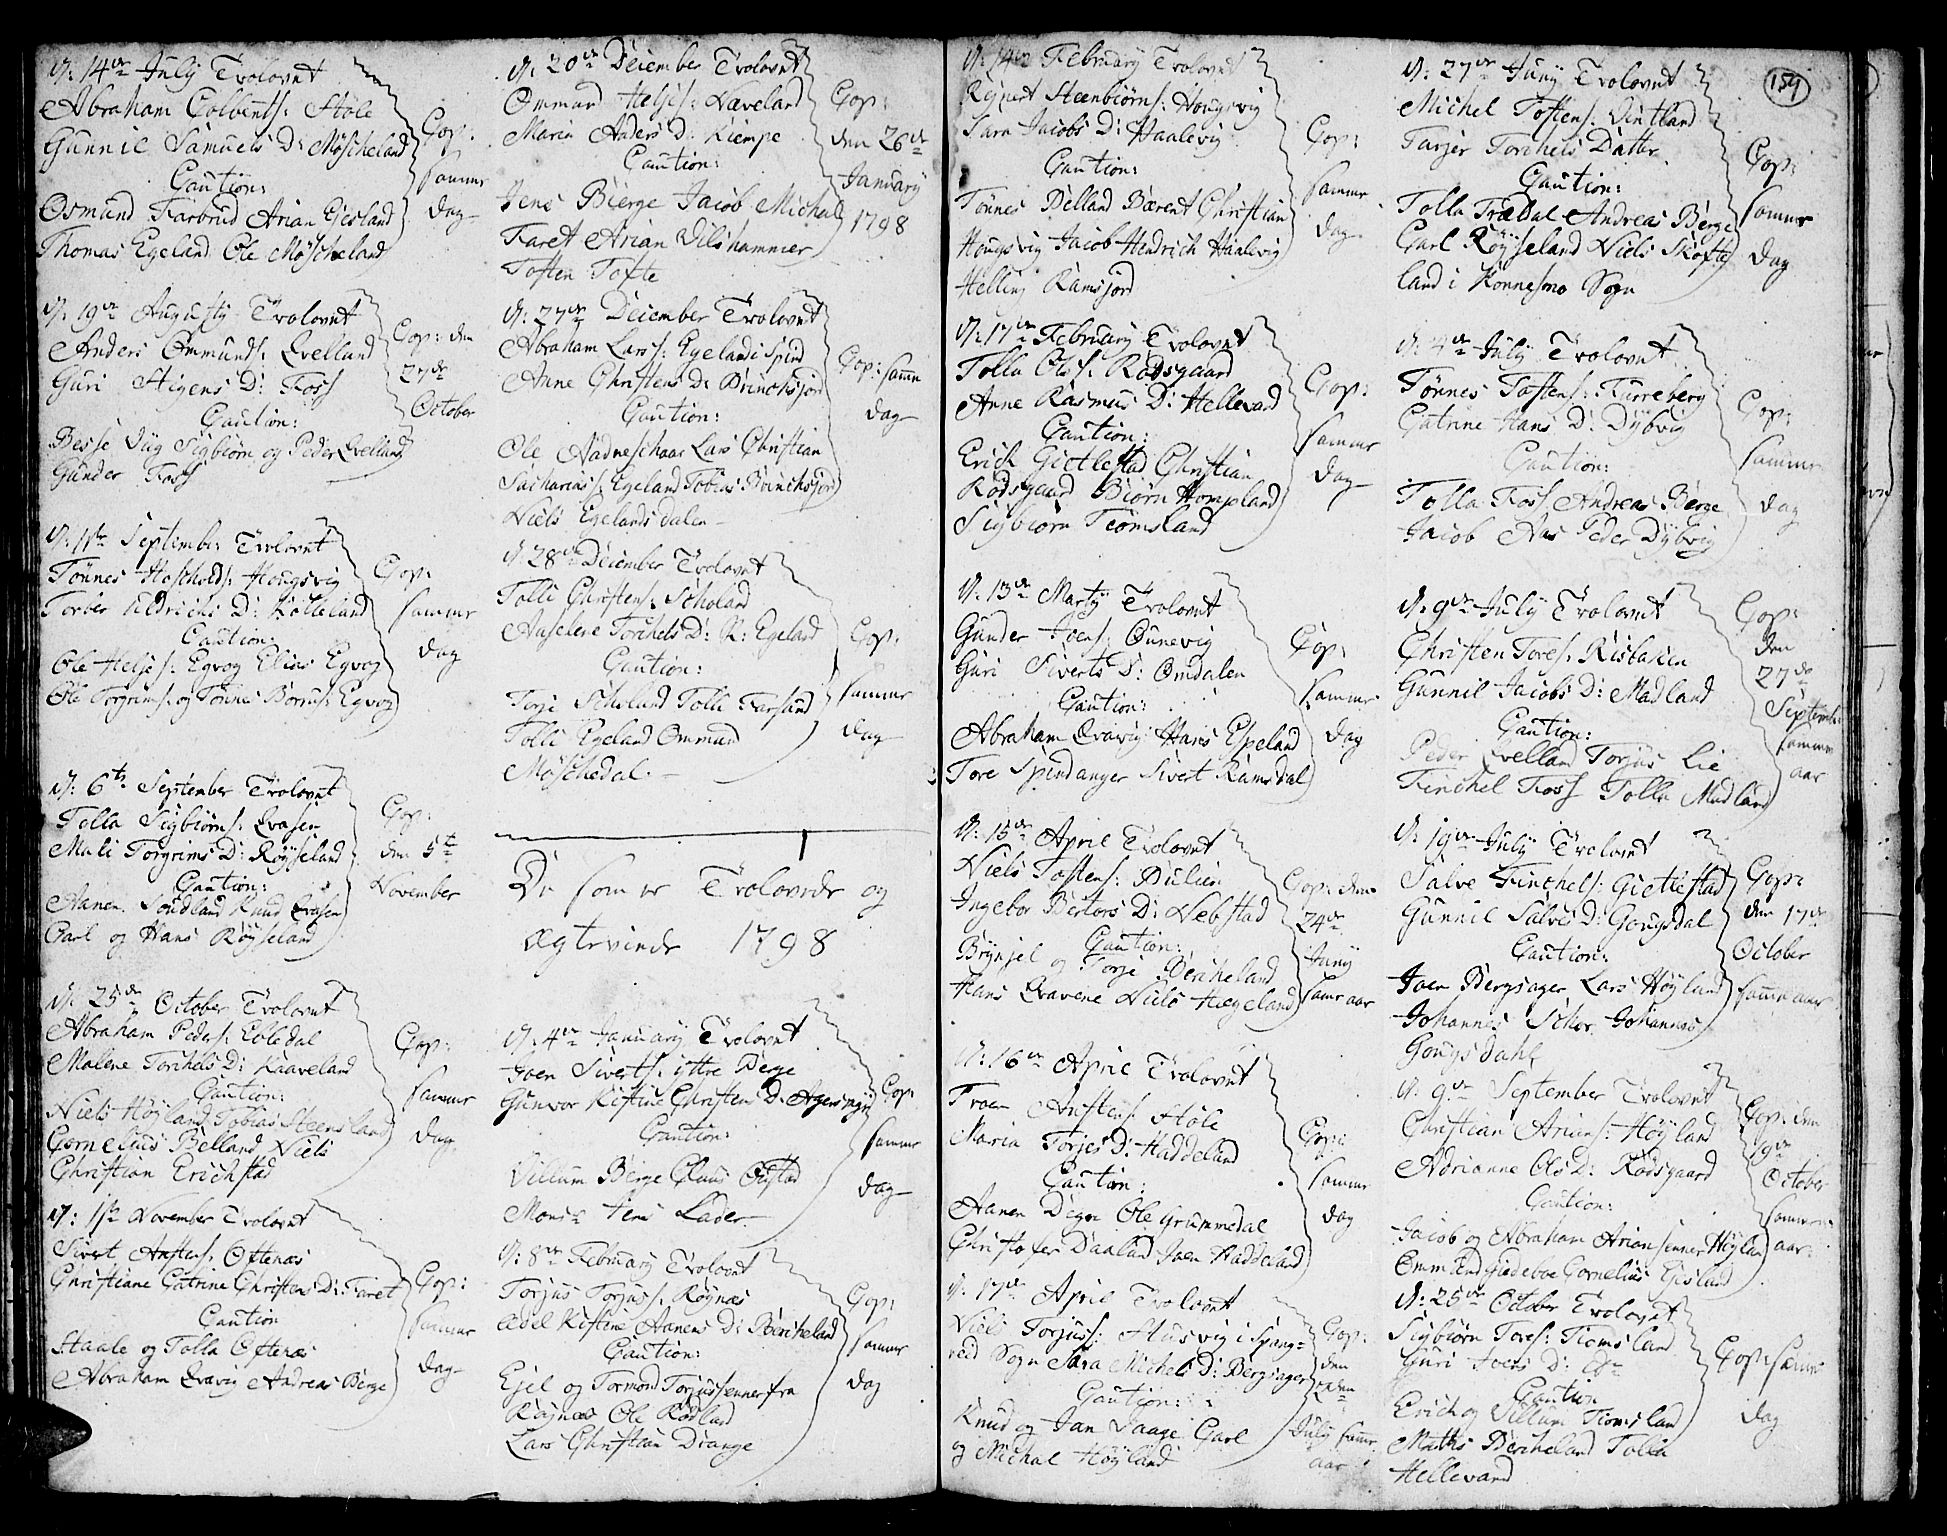 D: 14de July Trolovet
Abraham Colbents: Støle
Gunnil Samuels D: Møscheland
Caution:
Osmund Farbrud Arian Eiesland
Thomas Egeland Ole Møscheland
Cop:
samme
dag
D: 19de Augusty Trolovet
Anders Ommunds: Qvelland
Guri Stigens D: Foss
Caution:
Besse Dÿg Sigbiørn og Peder Qvelland
Gunder Foss
Cop: den
27de
October
D: 11te September Trolovet
Tønnes Hoscholds: Hougsvig
Torber Udrichs D: Kolleland
Caution:
Ole Heljes: Egvog Elias Egvog
Ole Torgrims: og Tønnes Borrus: Egvog
Cop:
samme
dag
D: 6te September Trolovet
Tolla Sigbiørns: Qvasen
Mali Torgrims D: Røÿseland
Caution:
Aanen Soudland Knud Qvasen
Carl og Hans Røÿseland
Cop:
den 5te
November
D: 25de October Trolovet
Abraham Peders: Ebledal
Malene Torchels D: Kaaveland
Caution:
Niels Høÿland Tobias Steensland
Cornelius Belland Niels
Christian Erichstad
Cop:
samme
dag
D: 1ste November Trolovet
Sivert Anstens: Oftenæs
Christiane Catrine Christens D: Faret
Caution
Staale og Tolla Oftenæs
Abraham Qvavig Andreas Berge
Cop:
samme
dag
D: 20de December Trolovet
Ommund Heljes: Næveland
Maria Anders D: Kiempe
Caution:
Jens Bierge Jacob Michal
Faret Arian Vilshammer
Tosten Tofte
Cop:
den 26de
January
1798
D: 27de December Trolovet
Abraham Larss: Egeland i Spind
Anne Christens D: Brinchsjord
Caution:
Ole Aadneschaar Lars Christian
Sacharias: Egeland Tobias Brinchsjord
Niels Egelands dalen
Cop: samme
dag
D: 28de December Trolovet
Tolli Christens: Scholand
Anselene Torchels D: R: Egeland
Caution:
Torje Scholand Tolli Farsund
Tolli Egeland Ommund
Møschedal.
Cop:
samme
dag
De som er Trolovede og
ægteviede 1798
D: 4de January Trolovet
Joen Siverts: ÿttre Berge
Gunvor Kistine Christens D: Agersmÿr
Caution:
Villum Berge Claus Opstad
Monsr Jens Lader
Cop:
samme
dag
D: 8de February Trolovet
Torjus Torjuss: Røÿnæs
Ædel Kistine Aanens D: Bircheland
Caution:
Ejel og Tormond Torjussenner fra
Røÿnæs Ole Rødland
Lars Christian Drange
Cop:
samme
dag
159
D: 14de February Trolovet
Reinert Steenbiørns: Hougsvig
Sara Jacobs D: Haalevig
Caution:
Tønnes Belland Bærent Christian
Hougsvig Jacob Hendrich Haalvig
Helling Ramsjord
Cop:
samme
dag
D: 17de February Trolovet
Tolla Ols: Rødsgaard
Anne Rasmus D: Hellevard
Caution:
Erich Gietlestad Christian
Rødsgaard Biørn Hompland
Sigbiørn Tiomsland
Cop:
samme
dag
D: 13de Martÿ Trolovet
Gunder Joens: Øunevig
Guri Siverts D: Omdalen
Caution:
Abraham Qvavig Hans Espeland
Tore Spindanger Sivert Ramsdal
Cop:
samme
dag
D: 15de April Trolovet
Niels Tostens: Bulien
Ingebor Bertors D: Nebstad
Caution:
Brynjel og Torje Bercheland
Hans Qvavene Niels Hægeland
Cop: den
24de
Juny
samme aar
D: 16de April Trolovet
Troen Anstens: Støle
Maria Torjes D: Haddeland
Caution:
Aanen Digre Ole Grummedal
Christofer Daaland Joen Haddeland
Cop:
samme
dag
D: 17de April Trolovet
Niels Torjuss: Husvig i Spang=
reid Sogn Sara Michels D: Bergsager
Caution:
Knud og Jan Vaage Carl
og Michal Høÿland
Cop:
den
2den
July samme
aar
D: 27de Junÿ Trolovet
Michel Tostens: Vintland
Tarjer Torchels Datter
Caution:
Tolla Trædal Andreas Berge
Carl Røÿseland Niels Skofte
land i Konnesmo Sogn
Cop:
samme
dag
D: 4de July Trolovet
Tønnes Tostens: Furreberg
Catrine Hans D: Dÿbvig
Caution:
Tolla Foss Andreas Berge
Jacob Aas Peder Dÿbvig
Cop:
samme
dag
D: 9de July Trolovet
Christen Tores: Risbaken
Gunnil Jacobs D: Madland
Caution:
Peder Qvelland Torjus Lie
Tinchel Foss Tolla Madland
Cop:
den
27de
Septembr:
samme
aar
D: 19de July Trolovet
Salve Tinchels: Gietlestad
Gunnil Salves D: Gougsdal
Caution:
Joen Bergsager Lars Høÿland
Johannes Schor Johannes
Gougsdahl
Cop:
den 17de
October
samme aar
D: 9de September Trolovet
Christian Arians: Høÿland
Adrianne Ols D: Rødsgaard
Caution:
Jacob og Abraham Ariansenner Høÿland
Ommund Giedeboe Cornelius Eiesland
Cop: den
19de
October
samme
aar
D: 25de October Trolovet
Sigbiørn Tores: Tiomsland
Guri Joens D: Do
Caution
Erich og Villum Tiomsland
Mathis Bercheland Tolla
Hellevard
Cop: samme
dag